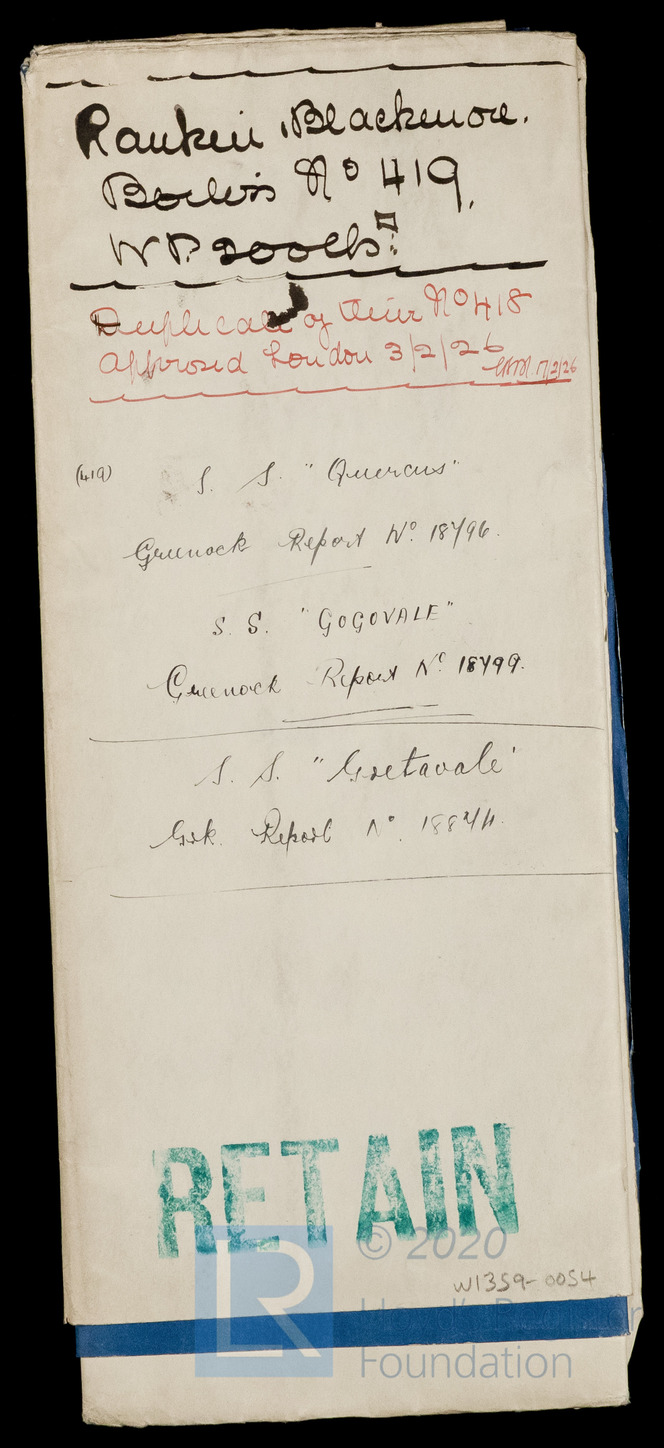 Rankin, Blackmore.
Boilers No 419.
W.P. 200 lbs □":
Duplicate of their No 418
Approved London 3/2/26
17/2/26
(419) S. S. "Quercus"
Greenock Report No. 18796.
S. S. "GOGOVALE"
Greenock Report No. 18799.
S. S. "Goetavale"
Grk. Report No. 18874.
RETAIN
© 2020
W1359-0054
LR
Foundation